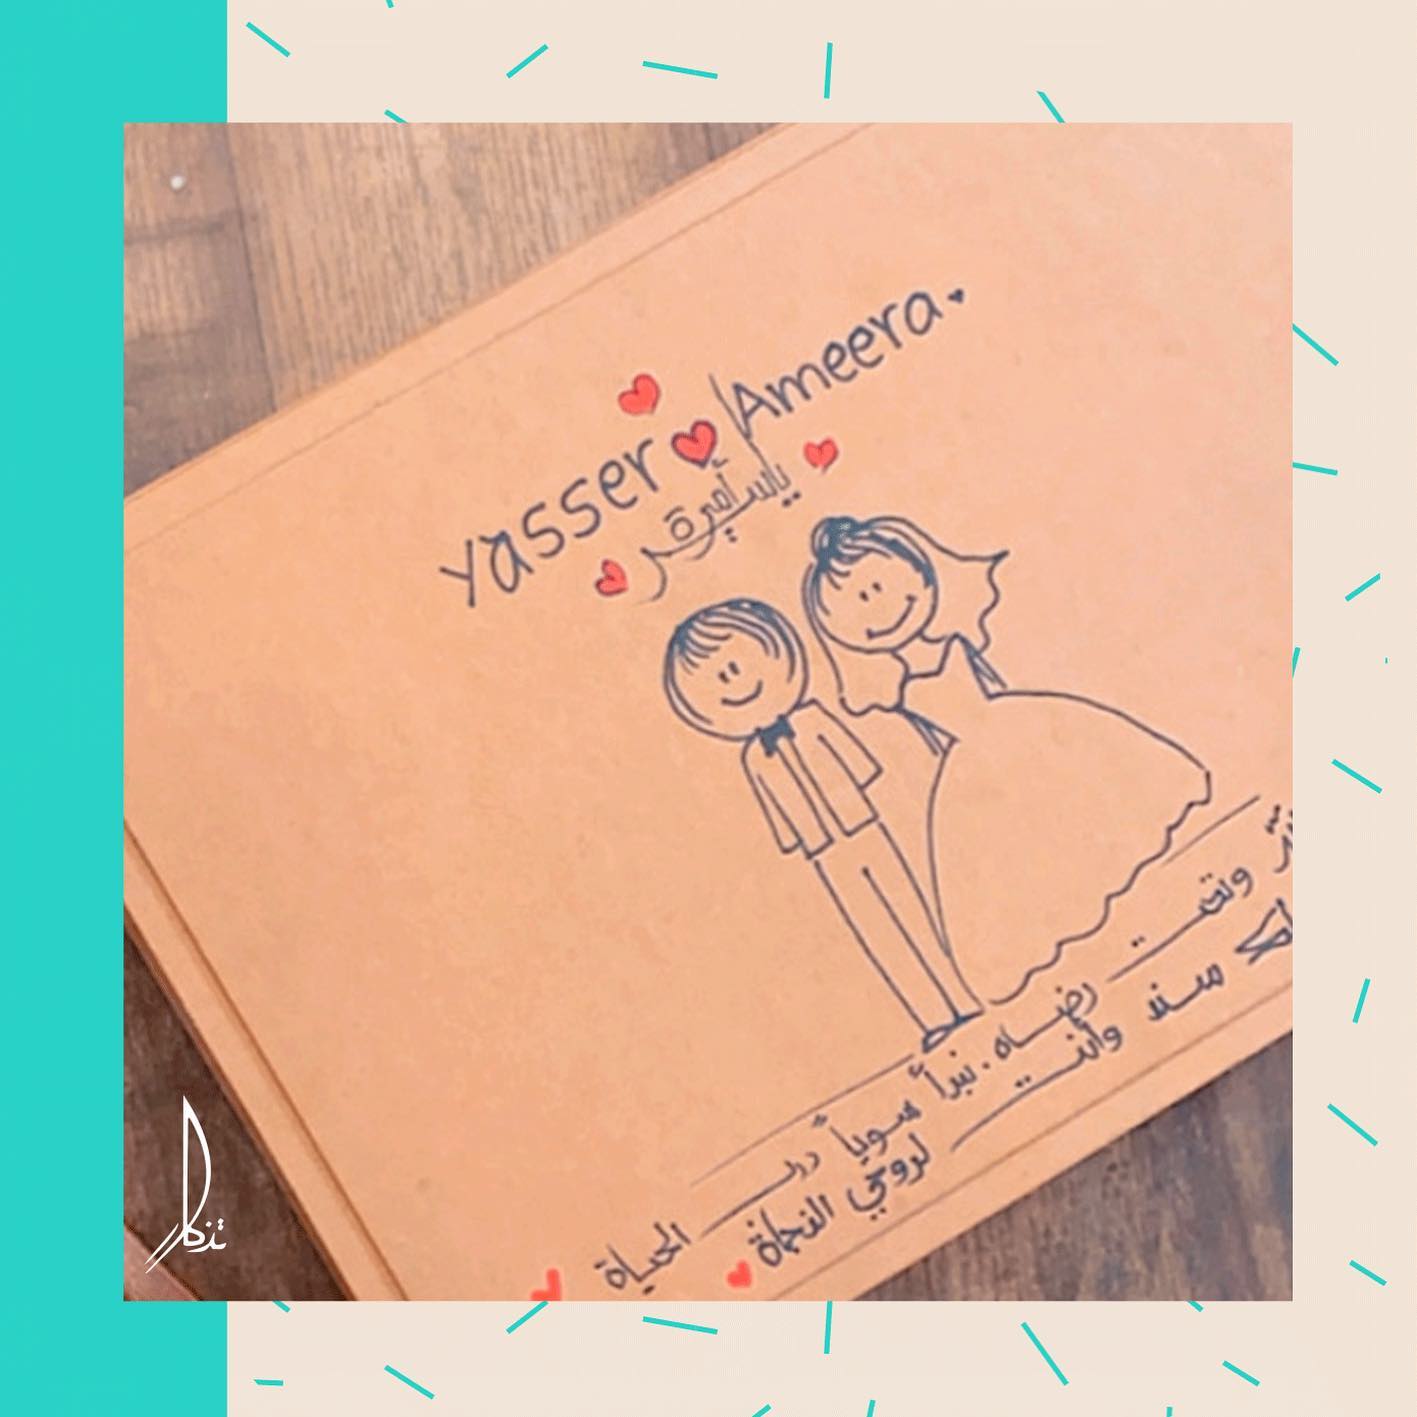 Yasser Ameera
ياسر أميرة
رضاه . نبدأ سوياً درب الحياة
سند وأنت لروحي النجاة
تذكار